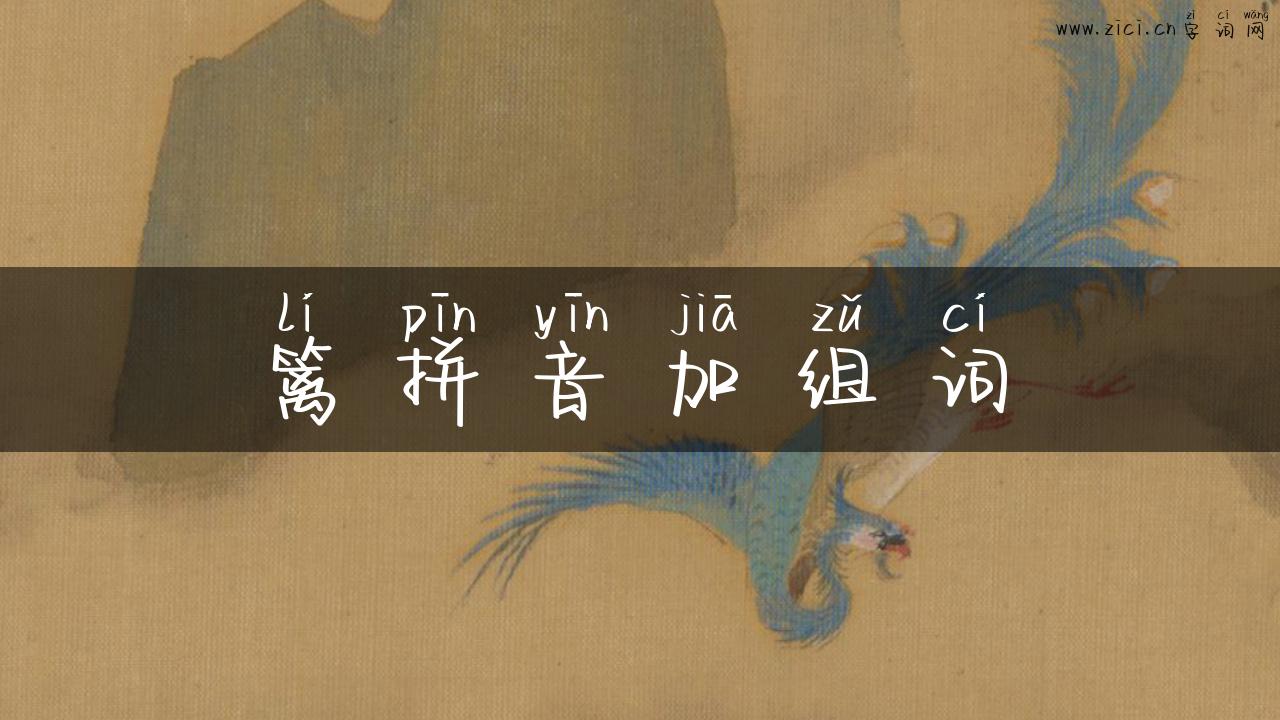 zì cí wǎng
www.zici.cn 字词网
lí pīn yīn jiā zǔ cí
篱拼音加组词